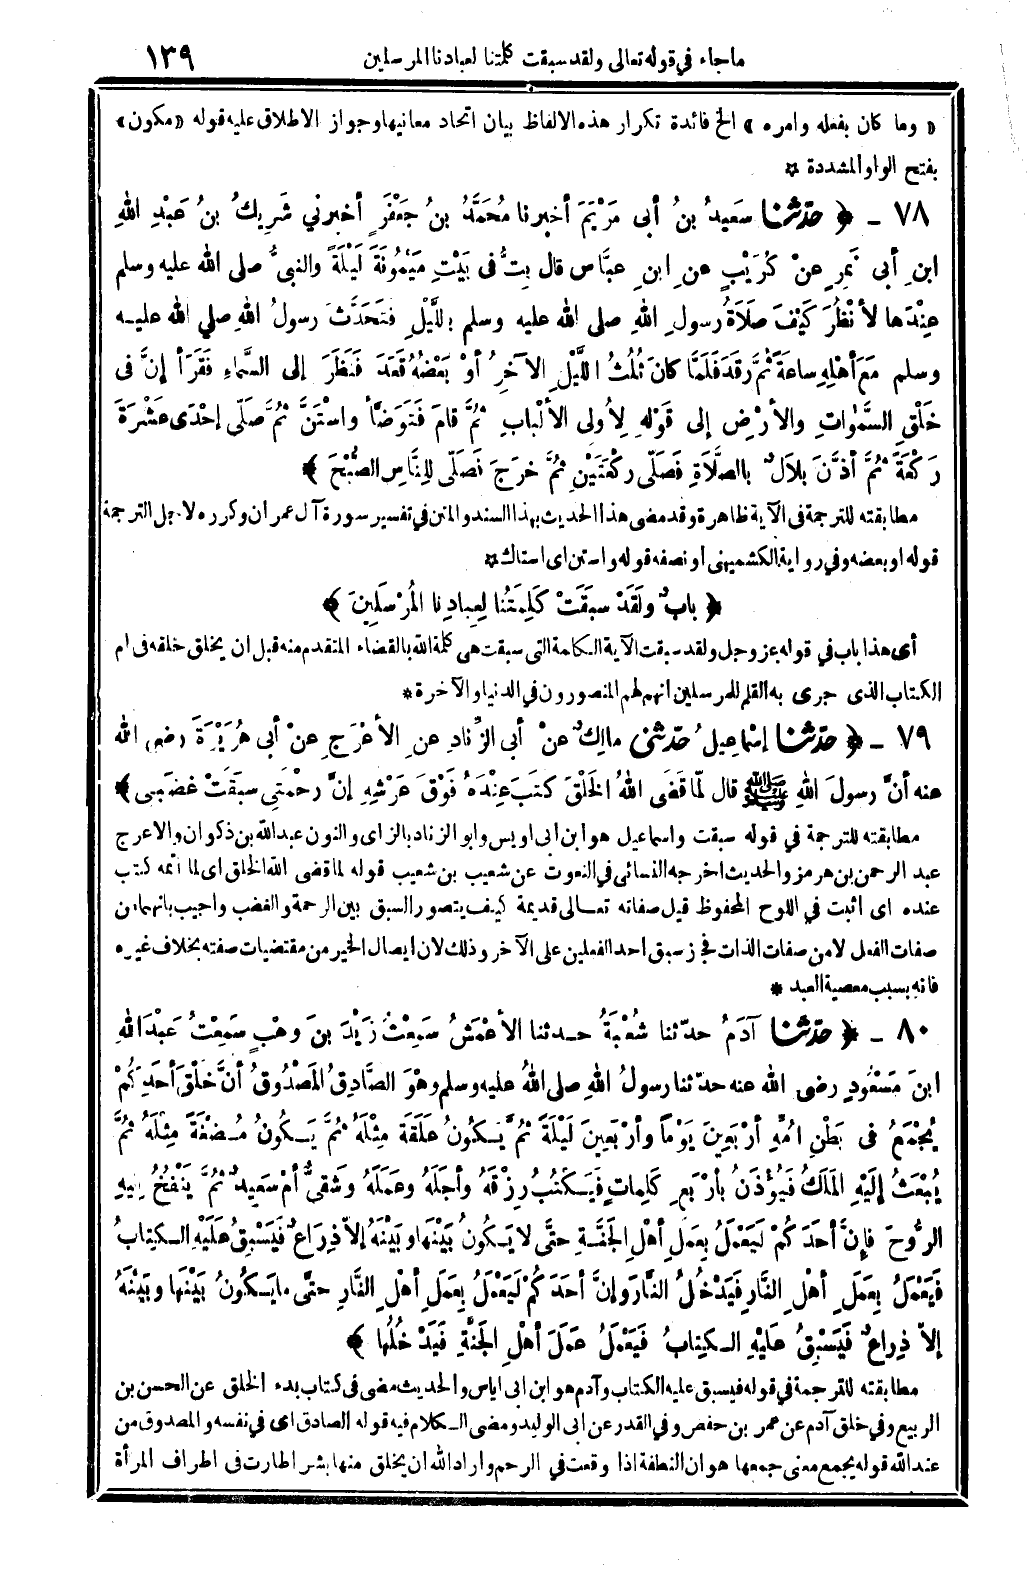 ماجاء في قوله تعالى ولقد سبقت كلمتنا لعبادنا المرسلين ١٣٩
« وما كان بفعله وامره » الخ فائدة تكرار هذه الالفاظ بيان اتحاد معانيها وجواز الاطلاق عليه قوله «مكون»
بفتح الواو المشددة *
٧٨ ـ ﴿ حَدَّثَنَا سَعِيدُ بنُ أبى مَرْيَمَ أخبرنا مُحَمَّدُ بنُ جَعْفَرٍ أخبرني شَرِيكُ بنُ عَبْدِ اللهِ
ابنِ أبي نَمِرٍ عنْ كُرَيْبٍ عنِ ابنِ عبَّاسٍ قال بِتُّ فى بَيْتِ مَيْمُونَةَ لَيْلَةً والنبىُّ صلى الله عليه وسلم
عِنْدَها لأنْظُرَ كَيْفَ صَلَاةُ رسولِ اللهِ صلى الله عليه وسلم باللَّيْلِ فَتَحَدَّثَ رسولُ اللهِ صلي الله عليه
وسلم مَعَ أهْلِهِ ساعَةً ثُمَّ رقَدَ فَلَمَّا كانَ ثُلُثُ اللَّيْلِ الآخِرُ أوْ بَعْضُهُ قَعَدَ فَنَظَرَ إلى السَّماءِ فَقَرَأ إنَّ فى
خَلْقِ السَّمٰواتِ والأرْضِ إلى قَوْلِهِ لِأُولى الألْبابِ ثُمَّ قامَ فَتَوَضَّأ واسْتَنَّ ثُمَّ صَلَّى إحْدَى عَشْرَةَ
رَكْعَةً ثُمَّ أذَّنَ بِلَالٌ بالصَّلَاةِ فَصَلَّى ركْعَتَيْنِ ثُمَّ خرَجَ فَصَلَّى لِلنَّاسِ الصُّبْحَ ﴾
مطابقته للترجمة فى الآية ظاهرة وقد مضى هذا الحديث بهذا السند والمتن في تفسير سورة آل عمران وكرره لاجل الترجمة
قوله او بعضه وفي رواية الكشميهنى او نصفه قوله واستن اى استاك *
﴿ بابٌ ولَقَدْ سبَقَتْ كَلِمَتُنا لِعِبادِنا المُرْسَلِينَ ﴾
أى هذا باب في قوله عز وجل ولقد سبقت الآية الكلمة التى سبقت هى كلمة الله بالقضاء المتقدم منه قبل ان يخلق خلقه فى ام
الكتاب الذى جرى به القلم للمرسلين انهم لهم المنصورون في الدنيا والآخرة *
٧٩ ـ ﴿ حَدَّثَنَا إسْماعِيلُ حَدَّثَنى مالِكٌ عنْ أبي الزِّنادِ عنِ الأعْرَجِ عنْ أبي هُرَيْرَةَ رضى الله
عنه أنَّ رسولَ اللهِ ﷺ قال لَمَّا قَضَى اللهُ الخَلْقَ كتَبَ عِنْدَهُ فَوْقَ عَرْشِهِ إنَّ رحْمَتِي سبَقَتْ غضَبى ﴾
مطابقته للترجمة في قوله سبقت واسماعيل هو ابن ابى اويس وابو الزناد بالزاى والنون عبد الله بن ذكوان والاعرج
عبد الرحمن بن هرمز والحديث اخرجه النسائى في النعوت عن شعيب بن شعيب قوله لما قضى الله الخلق اى لما أتمه كتب
عنده اى اثبت في اللوح المحفوظ قيل صفاته تعالى قديمة كيف يتصور السبق بين الرحمة والغضب واجيب بانهما من
صفات الفعل لا من صفات الذات فجاز سبق احد الفعلين على الآخر وذلك لان ايصال الخير من مقتضيات صفته بخلاف غيره
فانه بسبب معصية العبد *
٨٠ ـ ﴿ حَدَّثَنَا آدَمُ حدّثنا شُعْبَةُ حدثنا الأعْمَشُ سَمِعْتُ زَيْدَ بنَ وهْبٍ سَمِعْتُ عَبْدَ اللهِ
ابنَ مَسْعُودٍ رضى الله عنه حدّثنا رسولُ اللهِ صلى اللهُ عليه وسلم وهْوَ الصَّادِقُ المَصْدُوقُ أنَّ خَلْقَ أحَدِكُمْ
يُجْمَعُ فى بَطْنِ أُمِّهِ أرْبَعِينَ يَوْماً وأرْبَعِينَ لَيْلَةً ثُمَّ يَكُونُ عَلَقَةً مِثْلَهُ ثُمَّ يَكُونُ مُضْغَةً مِثْلَهُ ثُمَّ
يُبْعَثُ إلَيْهِ المَلَكُ فَيُؤْذَنُ بِأرْبَعِ كَلِماتٍ فَيَكْتُبُ رِزْقَهُ وأجَلَهُ وعَمَلَهُ وشَقىٌّ أمْ سَعِيدٌ ثُمَّ يَنْفُخُ فِيهِ
الرُّوحَ فإِنَّ أحَدَكُمْ لَيَعْمَلُ بِعَمَلِ أهْلِ الجَنَّةِ حتَّى لا يَكُونُ بَيْنَها وبَيْنَهُ إلاّ ذِرَاعٌ فَيَسْبِقُ عَلَيْهِ الكِتابُ
فَيَعْمَلُ بِعَمَلِ أهْلِ النَّارِ فَيَدْخُلُ النَّارَ وإنَّ أحَدَكُمْ لَيَعْمَلُ بِعَمَلِ أهْلِ النَّارِ حتَّى ما يَكُونُ بَيْنَها وبَيْنَهُ
إلاّ ذِراعٌ فَيَسْبِقُ عَلَيْهِ الكِتابُ فَيَعْمَلُ عَمَلَ أهْلِ الجَنَّةِ فَيَدْخُلُها ﴾
مطابقته للترجمة في قوله فيسبق عليه الكتاب وآدم هو ابن ابى اياس والحديث مضى فى كتاب بدء الخلق عن الحسن بن
الربيع وفي خلق آدم عن عمر بن حفص وفي القدر عن ابى الوليد ومضى الكلام فيه قوله الصادق اى في نفسه والمصدوق من
عند الله قوله يجمع معنى جمعها هو ان النطفة اذا وقعت في الرحم واراد الله ان يخلق منها بشرا طارت فى اطراف المرأة